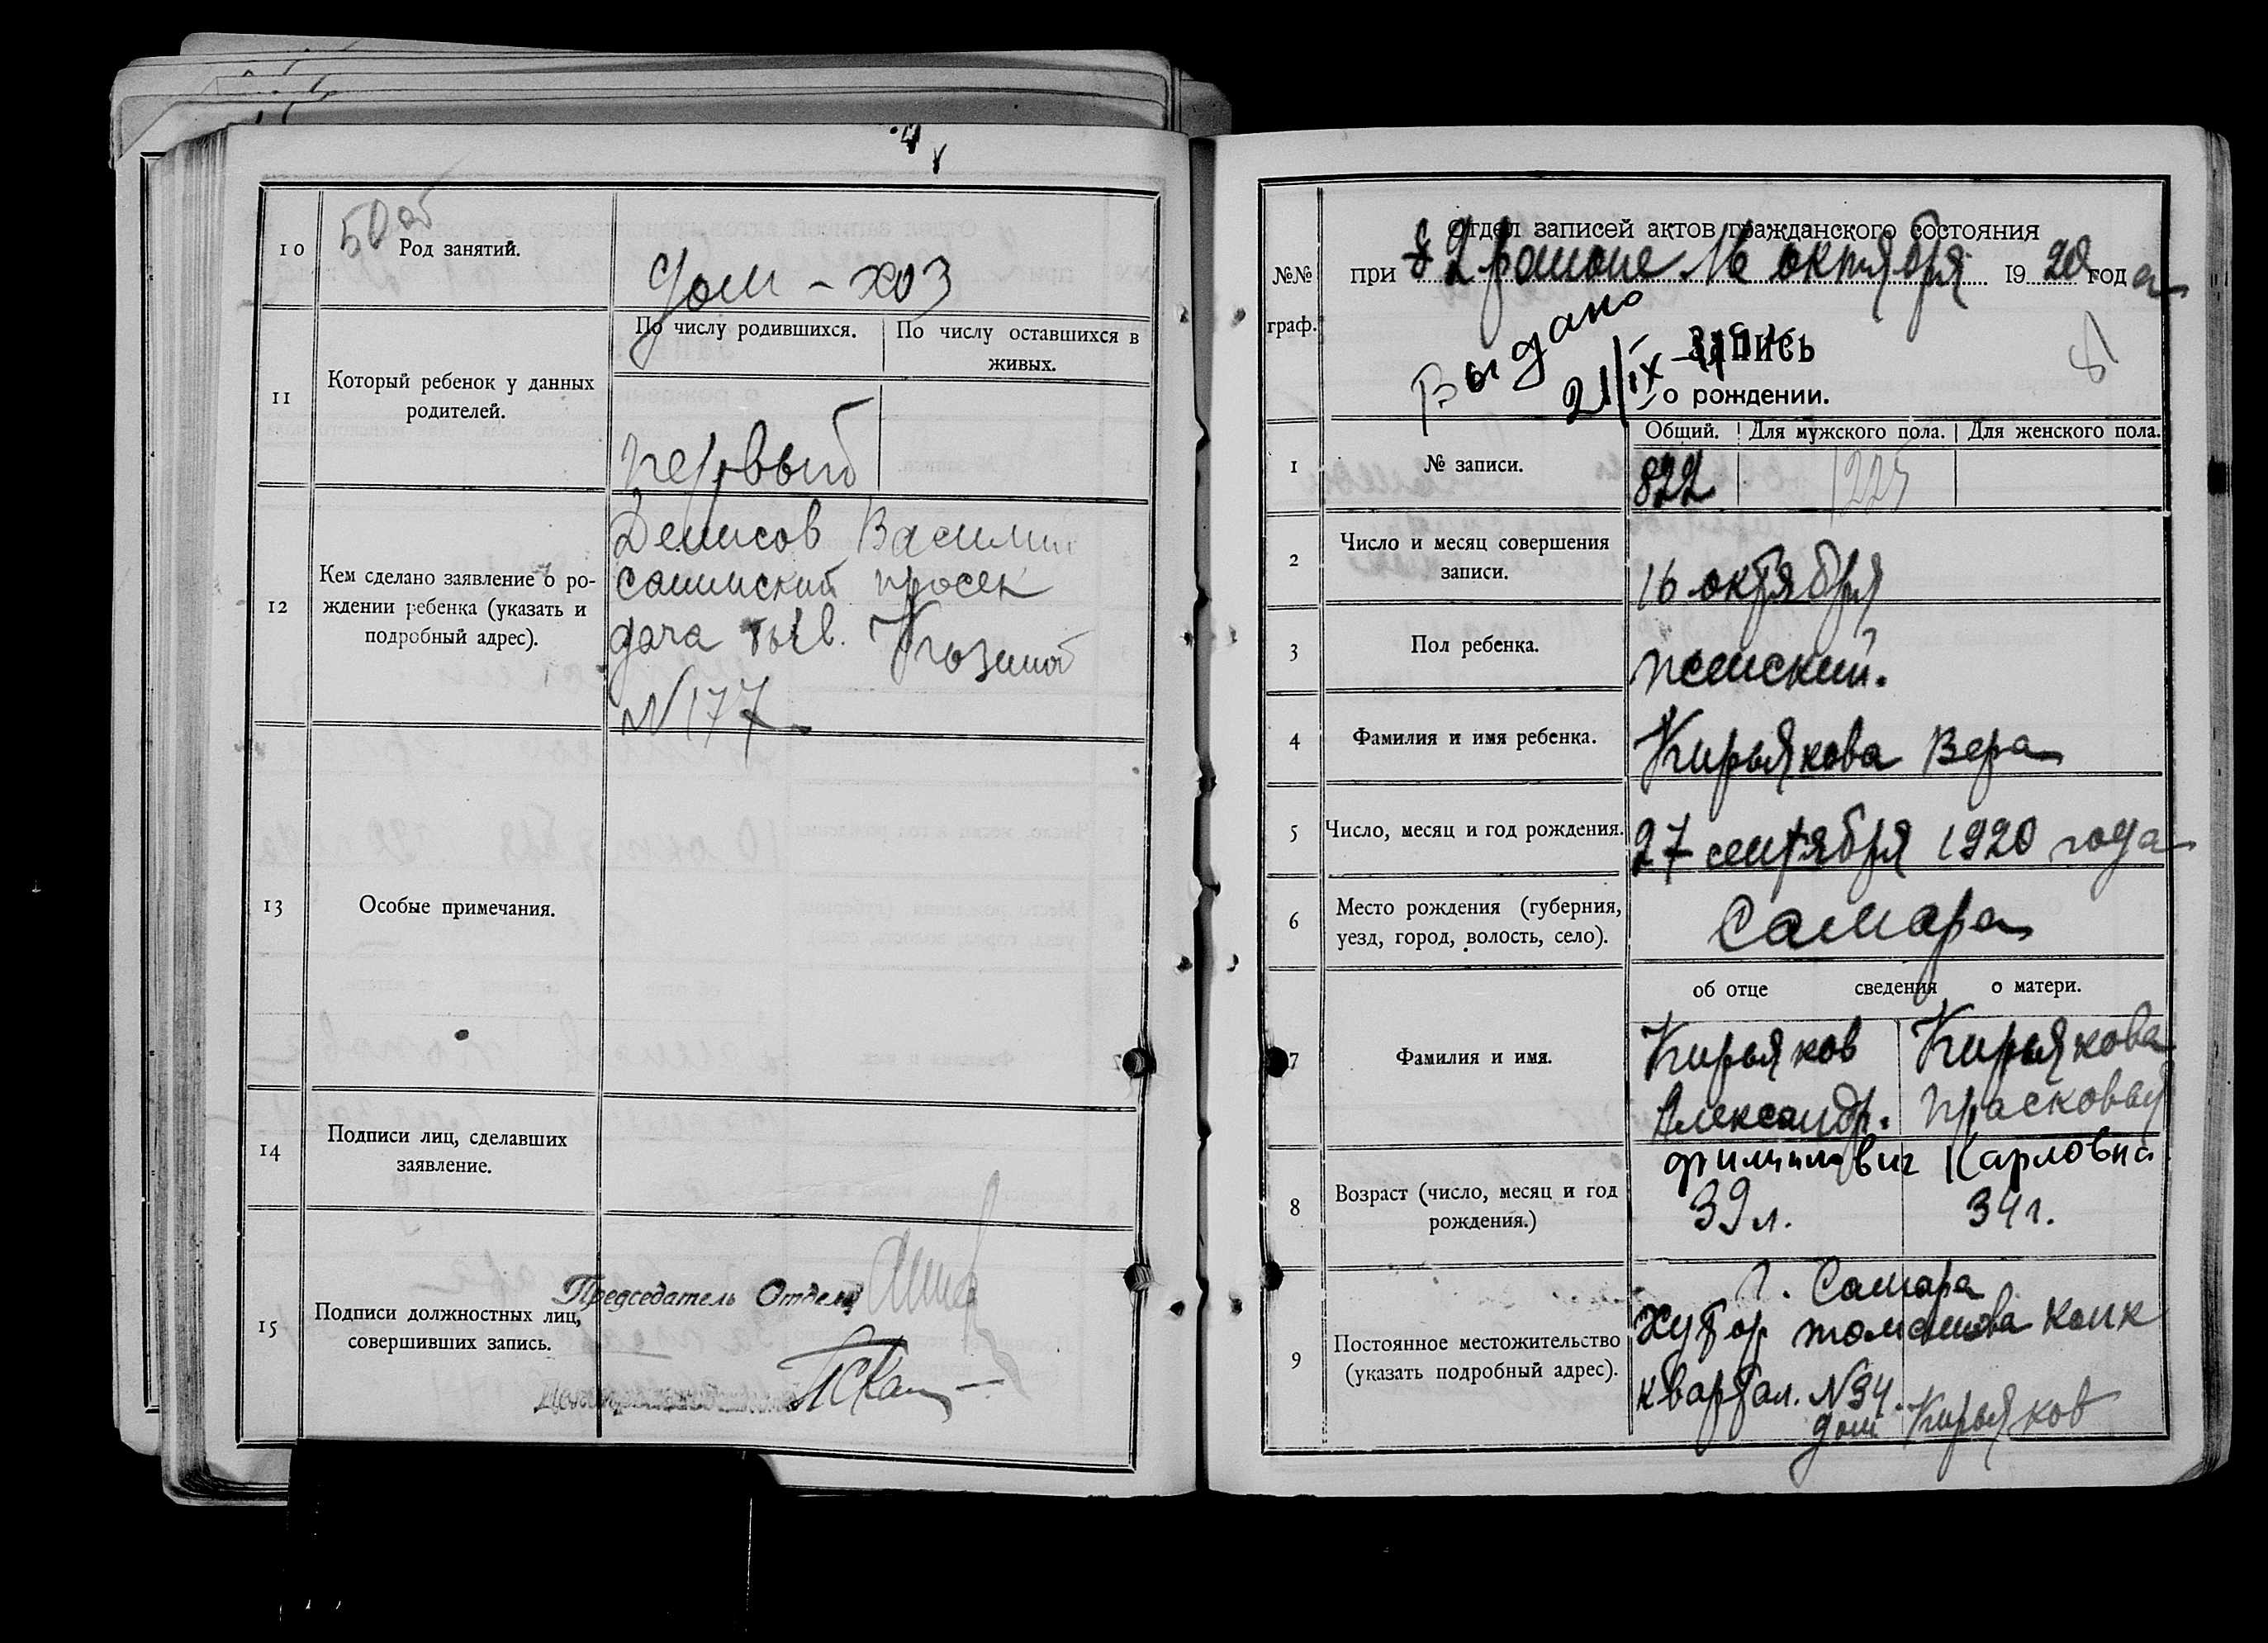 10
Род занятий.
дом-хоз
11
Который ребенок у данных
родителей.
По числу родившихся.
По числу оставшихся в
живых.
первый
12
Кем сделано заявление о ро-
ждении ребенка (указать и
подробный адрес).
Денисов Василий
просек
дача быв.
№ 177
13
Особые примечания.
14
Подписи лиц, сделавших
заявление.
15
Подписи должностных лиц,
совершивших запись.
Председатель Отдела
№№
граф.
Отдел записей актов гражданского состояния
при 2 районе 16 октября 1920 года
Выдано
21/IX
Запись
о рождении.
Общий. Для мужского пола. Для женского пола.
1
№ записи.
822
2
Число и месяц совершения
записи.
16 октября
3
Пол ребенка.
женский.
4
Фамилия и имя ребенка.
Кирьякова Вера
5
Число, месяц и год рождения.
27 сентября 1920 года
6
Место рождения (губерния,
уезд, город, волость, село).
Самара
об отце сведения о матери.
7
Фамилия и имя.
Кирьяков Кирьякова
Александр. Прасковья
Филиппович Карловна
8
Возраст (число, месяц и год
рождения.)
39 л. 34 г.
9
Постоянное местожительство
(указать подробный адрес).
г. Самара
Хутор
квартал. №34.
дом Кирьяков